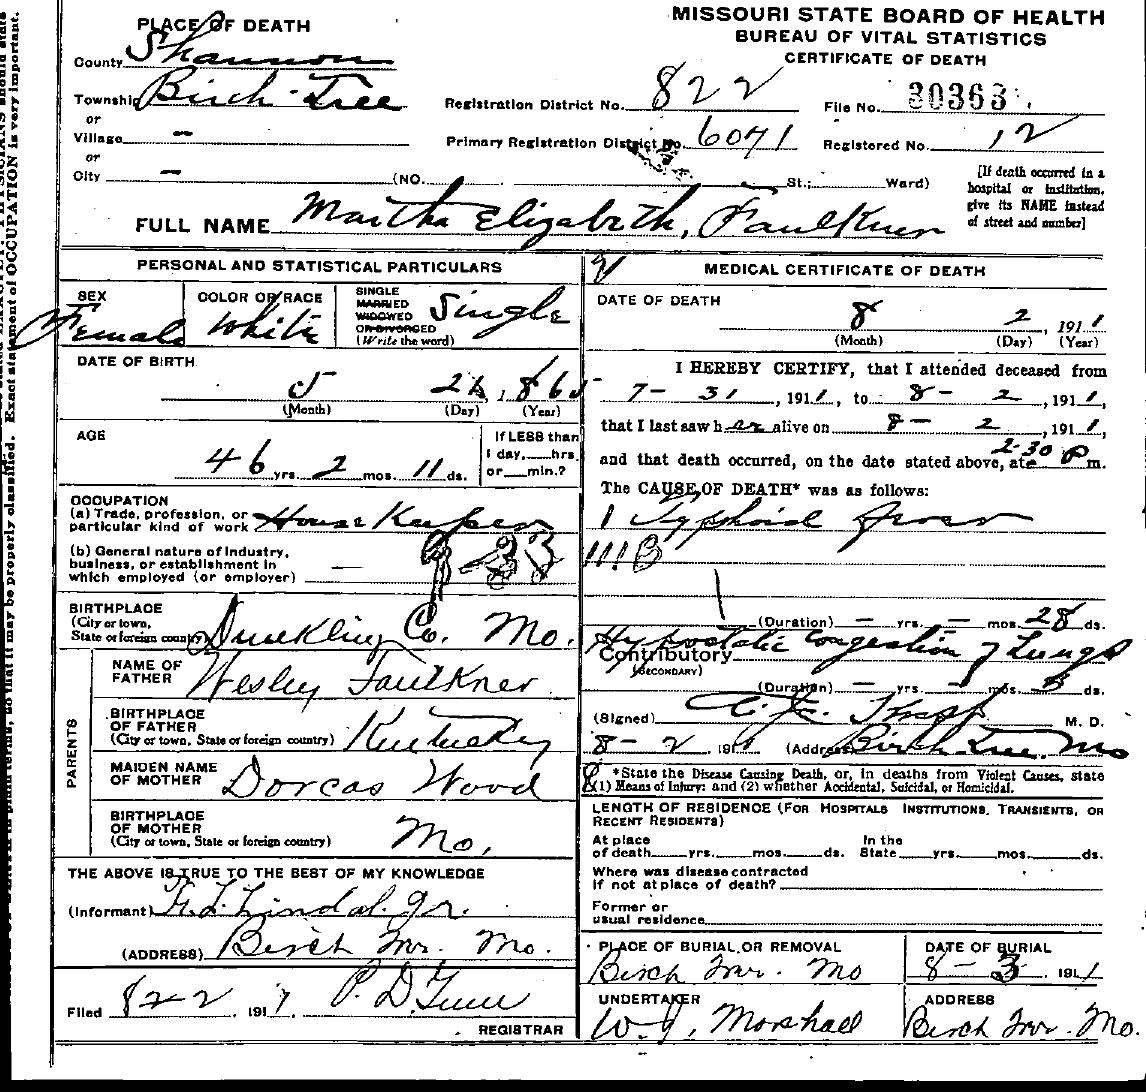 MISSOURI STATE BOARD OF HEALTH
BUREAU OF VITAL STATISTICS
CERTIFICATE OF DEATH
PLACE OF DEATH
County Shannon
Township Birch Tree
or
Village -
or
City - (NO. St.; Ward)
Registration District No. 822
File No. 30363
Primary Registration District No. 6071
Registered No. 12
[If death occurred in a
hospital or institution,
give its NAME instead
of street and number]
FULL NAME Martha Elizabeth, Faulkner
PERSONAL AND STATISTICAL PARTICULARS
SEX
Female
COLOR OR RACE
White
SINGLE
MARRIED
WIDOWED
OR DIVORCED
(Write the word)
Single
DATE OF BIRTH
5
(Month) (Day) (Year)
AGE
46 yrs. 2 mos. 11 ds.
If LESS than
1 day, hrs.
or min.?
OCCUPATION
(a) Trade, profession, or
particular kind of work House Keeper
(b) General nature of industry,
business, or establishment in
which employed (or employer) —
BIRTHPLACE
(City or town,
State or foreign country) Dunkling Co. Mo.
PARENTS
NAME OF
FATHER Wesley Faulkner
BIRTHPLACE
OF FATHER
(City or town, State or foreign country) Kentucky
MAIDEN NAME
OF MOTHER Dorcas Wood
BIRTHPLACE
OF MOTHER
(City or town, State or foreign country) Mo.
THE ABOVE IS TRUE TO THE BEST OF MY KNOWLEDGE
(Informant)
(ADDRESS) Birch Mo.
Filed 191
REGISTRAR
MEDICAL CERTIFICATE OF DEATH
DATE OF DEATH
8 2, 1911
(Month) (Day) (Year)
I HEREBY CERTIFY, that I attended deceased from
7-31, 1911, to 8-2, 1911,
that I last saw her alive on 8-2, 1911,
and that death occurred, on the date stated above, at 2-30 P m.
The CAUSE OF DEATH* was as follows:
1 Typhoid fever
(Duration) — yrs. — mos. 28 ds.
Hypostatic Congestion of Lungs
Contributory
(SECONDARY)
(Duration) — yrs. — mos. ds.
(Signed) M. D.
8-2 1911 (Address) Birch Tree Mo
*State the Disease Causing Death, or, in deaths from Violent Causes, state
(1) Means of Injury; and (2) whether Accidental, Suicidal, or Homicidal.
LENGTH OF RESIDENCE (FOR HOSPITALS, INSTITUTIONS, TRANSIENTS, OR
RECENT RESIDENTS)
At place
of death yrs. mos. ds.
In the
State yrs. mos. ds.
Where was disease contracted
If not at place of death?
Former or
usual residence
PLACE OF BURIAL OR REMOVAL
Birch Mo
DATE OF BURIAL
8-3 1911
UNDERTAKER
Marshall
ADDRESS
Birch Mo.
so that it may be properly classified. Exact statement of OCCUPATION is very important.